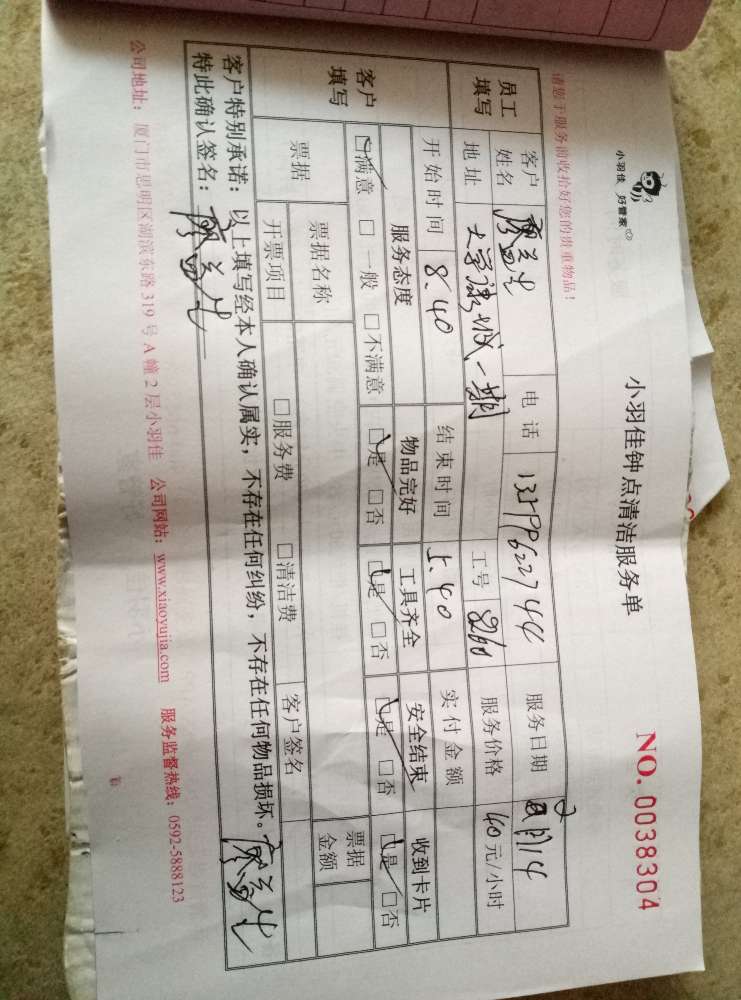 小羽佳 好管家
小羽佳钟点清洁服务单
NO. 0038304
请您于服务前收拾好您的贵重物品！
员工填写
客户姓名 廖益生 电话 服务日期
地址 大学康城一期 工号 服务价格 40元/小时
开始时间 8.40 结束时间 5.40 实付金额
客户填写
服务态度 物品完好 工具齐全 安全结束 收到卡片
☑满意 □一般 □不满意 ☑是 □否 ☑是 □否 ☑是 □否 ☑是 □否
票据 票据名称 票据金额
开票项目 □服务费 □清洁费 客户签名
客户特别承诺：以上填写经本人确认属实，不存在任何纠纷，不存在任何物品损坏。
特此确认签名：廖益生 廖益生
公司地址：厦门市思明区湖滨东路 319 号 A 幢 2 层小羽佳 公司网站：www.xiaoyujia.com 服务监督热线：0592-5888123